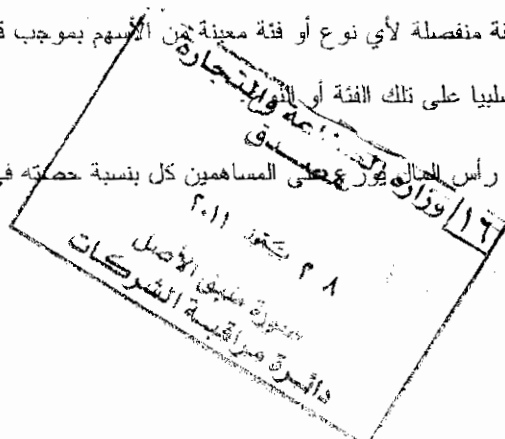 منفصلة لأي نوع أو فئة معينة من الأسهم بموجب
سلبيا على تلك الفئة أو النوع
رأس المال يوزع على المساهمين كل بنسبة حصته في
١٦ وزارة الصناعة والتجارة
مصدق
٢٠١١
صورة طبق الأصل
دائرة مراقبة الشركات